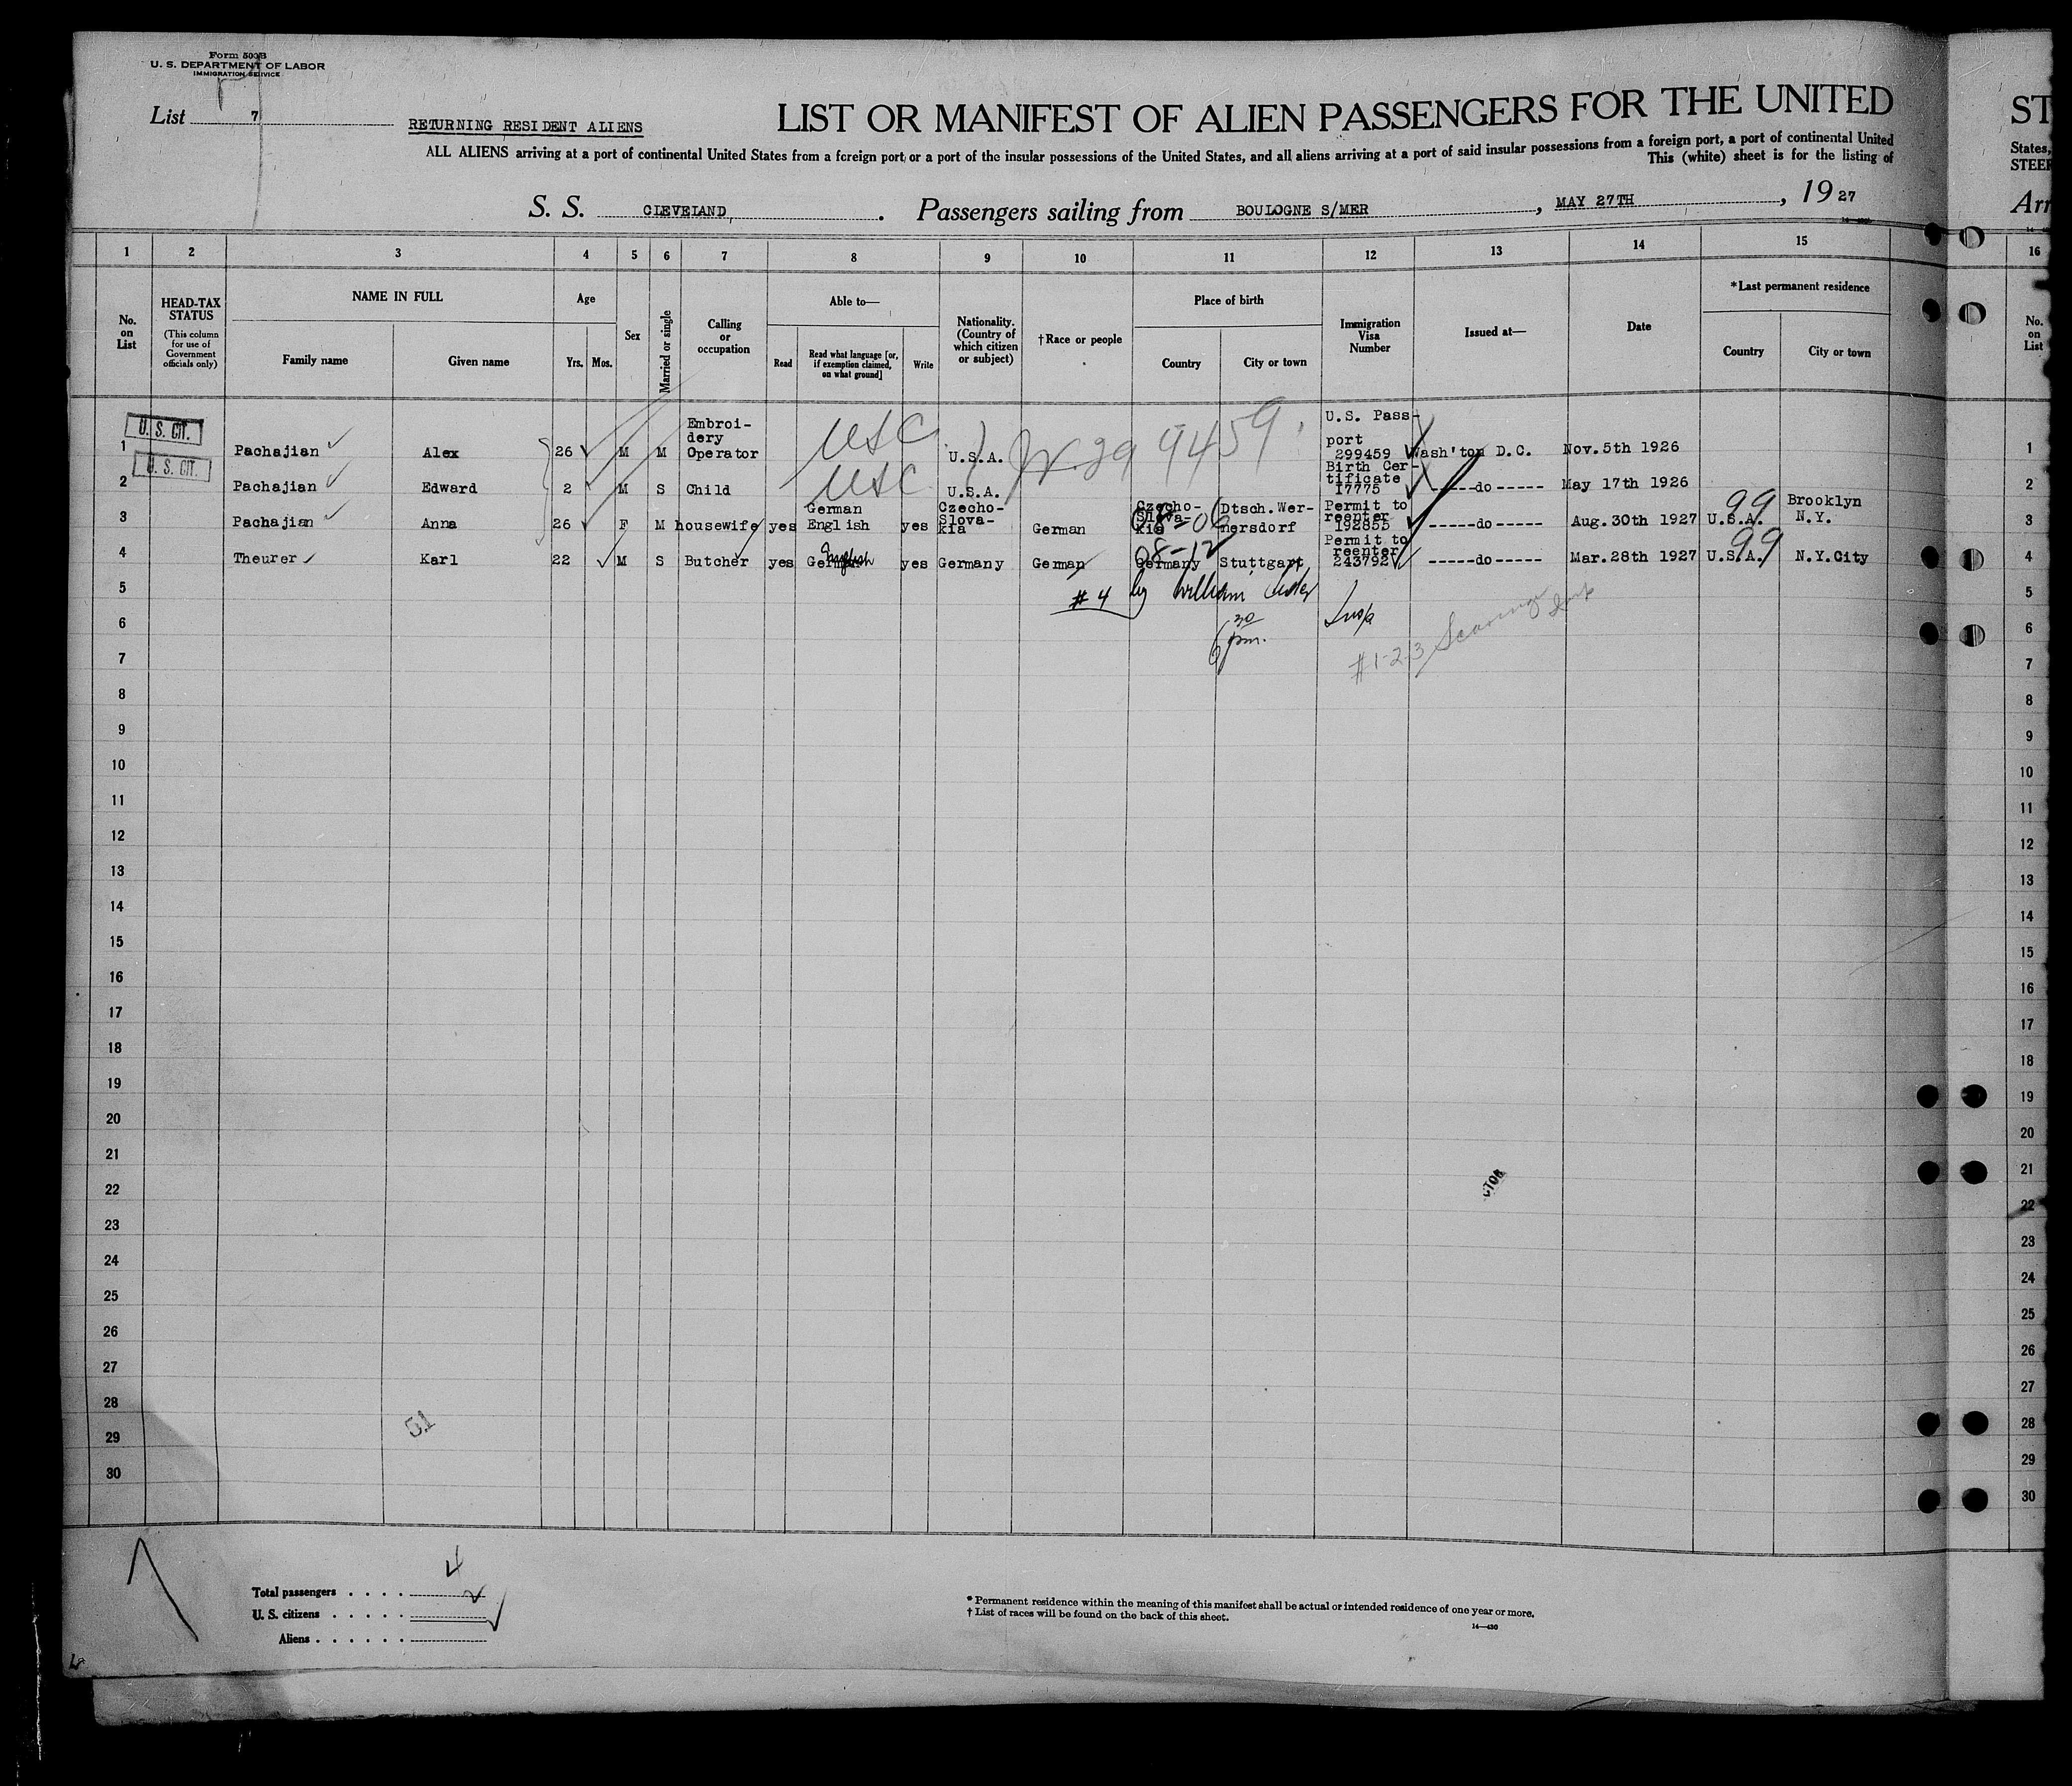 Form 500B
U. S. DEPARTMENT OF LABOR
IMMIGRATION SERVICE
List 7
RETURNING RESIDENT ALIENS
LIST OR MANIFEST OF ALIEN PASSENGERS FOR THE UNITED
ST
ALL ALIENS arriving at a port of continental United States from a foreign port or a port of the insular possessions of the United States, and all aliens arriving at a port of said insular possessions from a foreign port, a port of continental United
States,
This (white) sheet is for the listing of
STEER
S. S. CLEVELAND, . Passengers sailing from BOULOGNE S/MER , MAY 27TH , 19 27
Arr
1 2 3 4 5 6 7 8 9 10 11 12 13 14 15 16
No. on List
HEAD-TAX STATUS
(This column for use of Government officials only)
NAME IN FULL
Family name
Given name
Age
Yrs.
Mos.
Sex
Married or single
Calling or occupation
Able to—
Read
Read what language [or, if exemption claimed, on what ground]
Write
Nationality. (Country of which citizen or subject)
† Race or people
Place of birth
Country
City or town
Immigration Visa Number
Issued at—
Date
*Last permanent residence
Country
City or town
No. on List
U. S. CIT.
1 Pachajian Alex 26 M M Embroi-dery Operator USC U.S.A. 299459 U.S. Pass-port 299459 Wash'ton D.C. Nov.5th 1926 1
U. S. CIT.
2 Pachajian Edward 2 M S Child USC U.S.A. Birth Cer-tificate 17775 -----do----- May 17th 1926 2
3 Pachajian Anna 26 F M housewife yes German English yes Czecho-Slova-kia German Czecho-Slova-kia Dtsch.Wer-nersdorf Permit to reenter 192855 -----do----- Aug.30th 1927 U.S.A. 99 Brooklyn N.Y. 3
4 Theurer Karl 22 M S Butcher yes German English yes Germany German 08-12 Germany Stuttgart Permit to reenter 243792 -----do----- Mar.28th 1927 U.S.A. 99 N.Y.City 4
5 # 4 by William 5
6 6 30 pm. Insp 6
7 #1-2-3 7
8 8
9 9
10 10
11 11
12 12
13 13
14 14
15 15
16 16
17 17
18 18
19 19
20 20
21 21
CTOR
22 22
23 23
24 24
25 25
26 26
27 27
28 28
51
29 29
30 30
Total passengers . . . . 4
U. S. citizens . . . . . 2
Aliens . . . . . .
* Permanent residence within the meaning of this manifest shall be actual or intended residence of one year or more.
† List of races will be found on the back of this sheet.
14—430